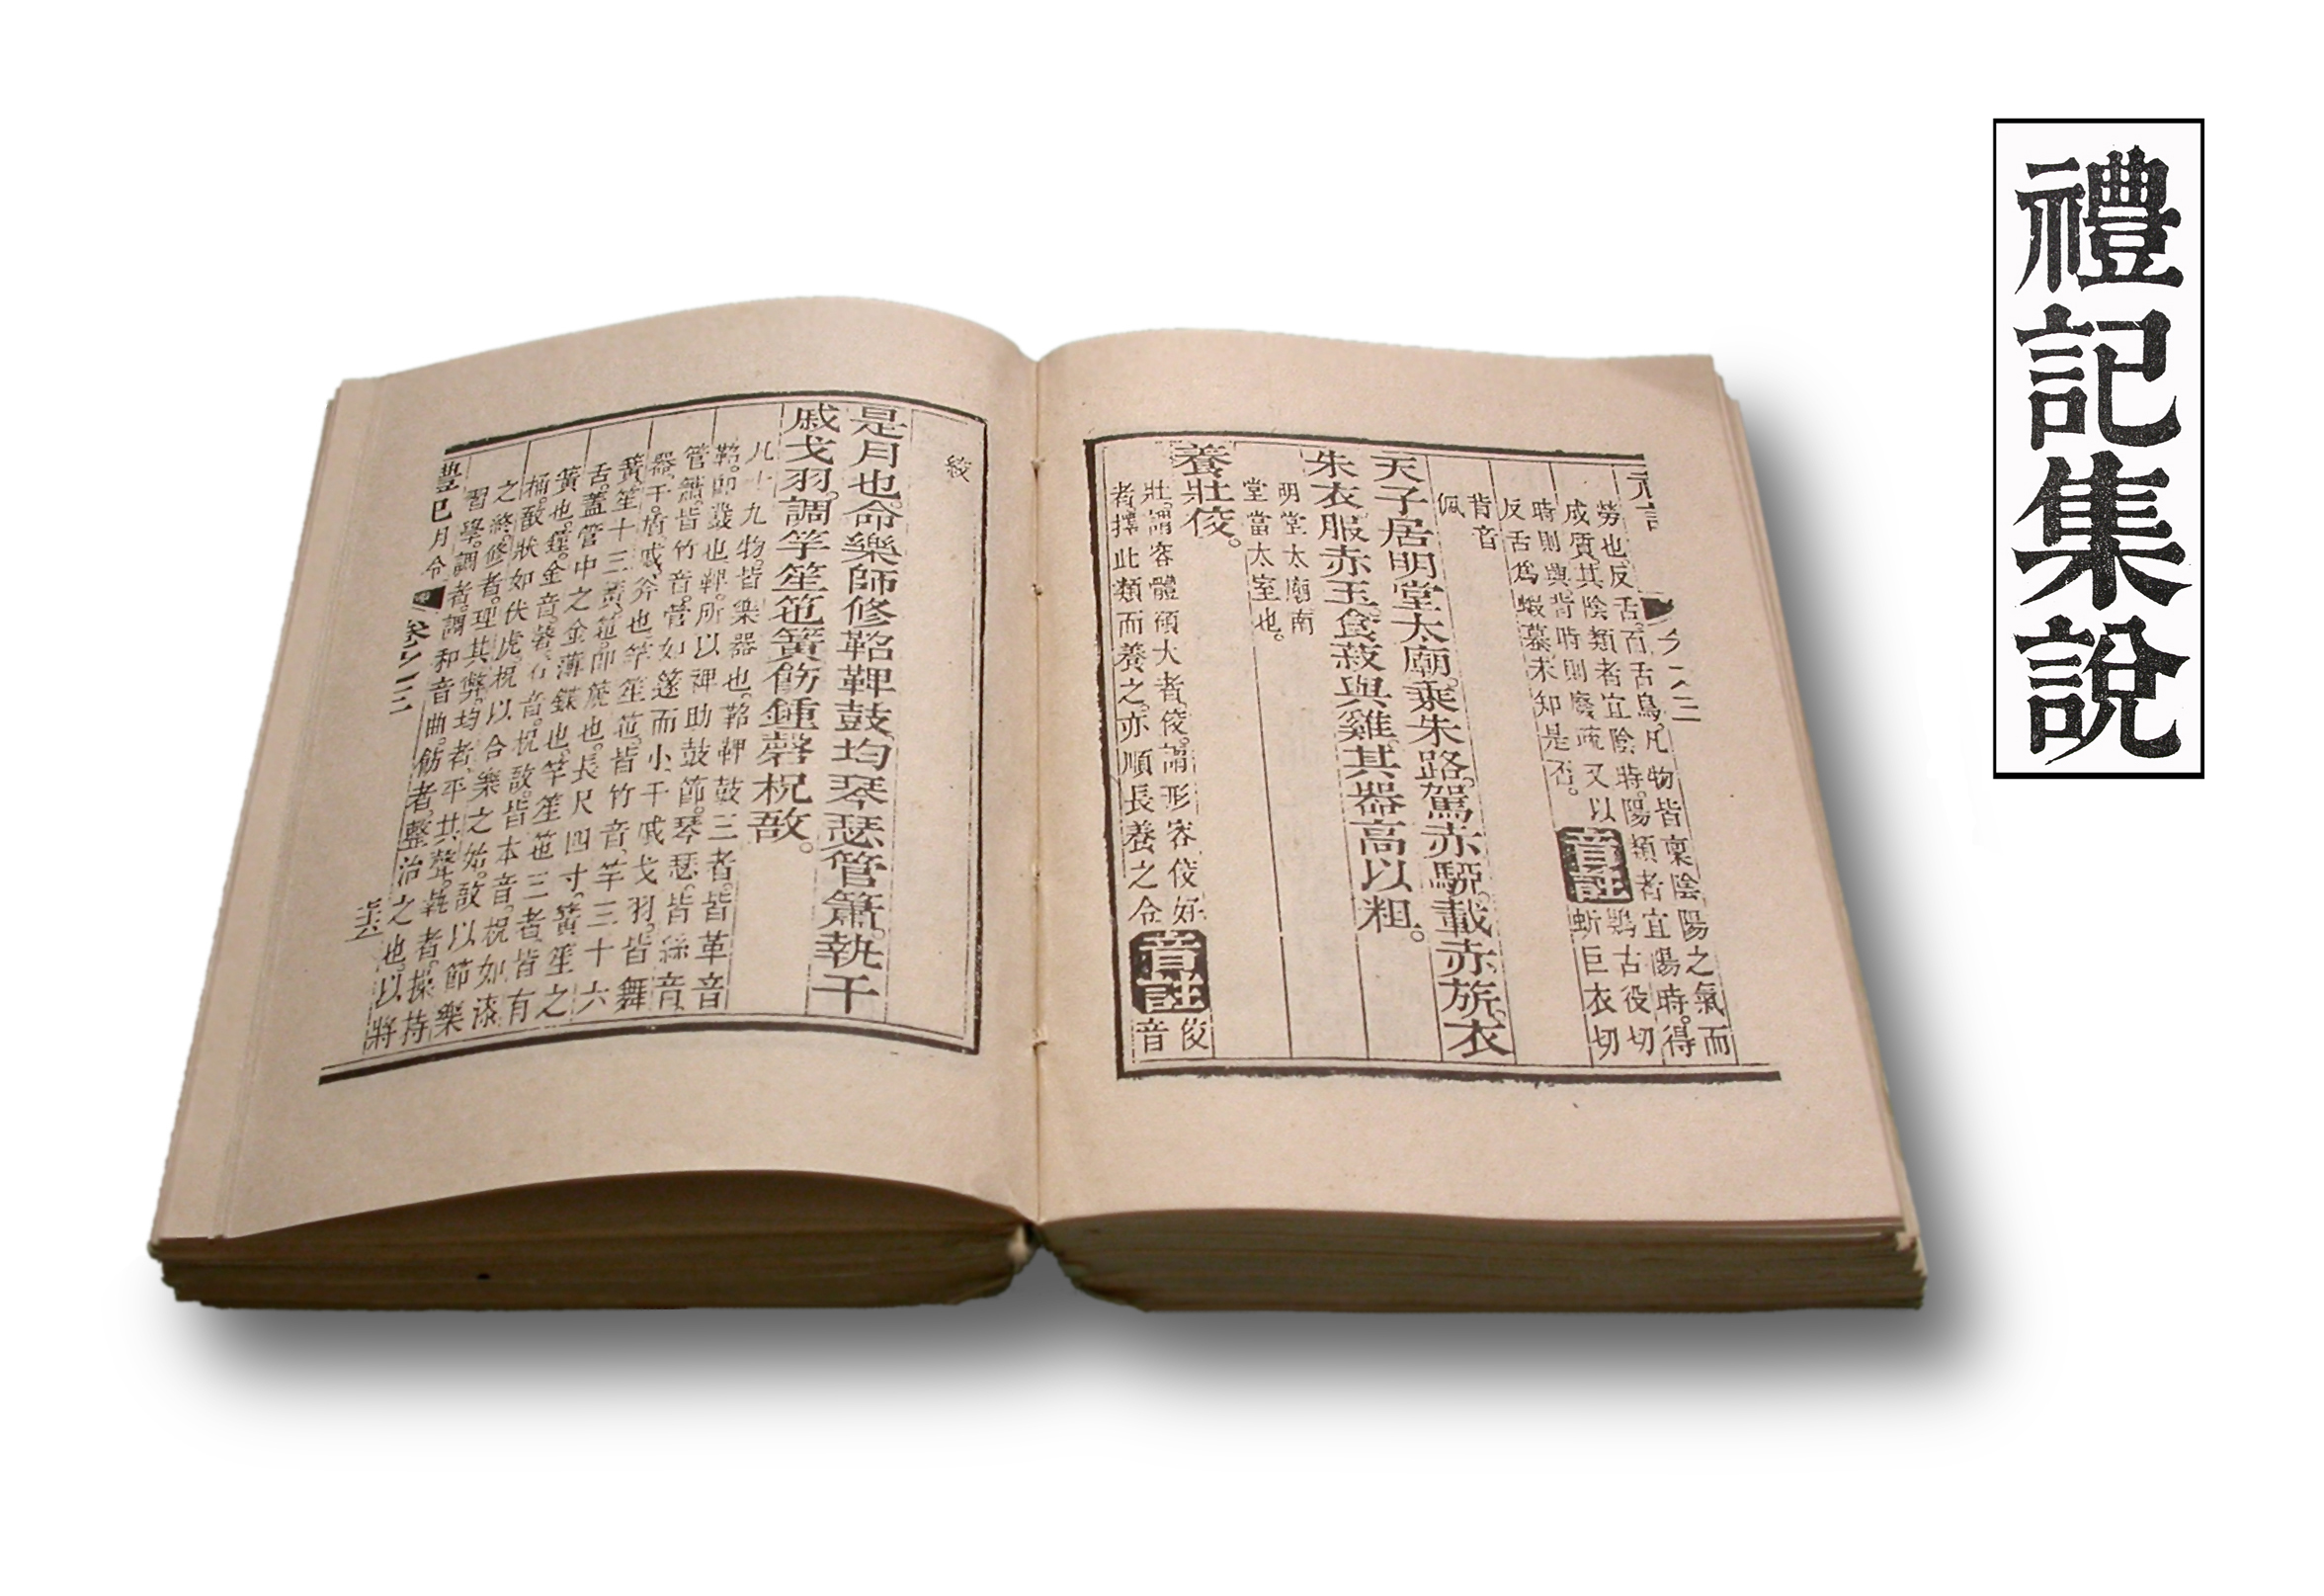 禮記集說
勞也。反舌。百舌鳥。凡物皆稟陰陽之氣而
成質。其陰類者宜陰時。陽類者宜陽時。得
時則興。背時則廢。疏又以
反舌爲蝦蟇未知是否。
音註
鶪古役切
蚚巨衣切
背音
佩
天子居明堂太廟。乘朱路。駕赤騮。載赤旂。衣
朱衣服赤玉。食菽與雞。其器高以粗。
明堂太廟南
堂當太室也。
養壯佼。
壯。謂容體碩大者。佼。謂形容佼好
者。擇此類而養之。亦順長養之令
音註
佼
音
絞
是月也。命樂師修鞀鞞鼓。均琴瑟管簫。執干
戚戈羽。調竽笙竾簧。飭鍾磬柷敔。
凡十九物。皆樂器也。鞀鞞鼓三者。皆革音
鞀。卽鼗也。鞞。所以裨助鼓節。琴瑟。皆絲音。
管簫。皆竹音。管如篴而小。干戚戈羽。皆舞
器。干。盾。戚。斧也。竽笙竾。皆竹音。竽三十六
簧。笙十三簧。竾。卽箎也。長尺四寸。簧。笙之
舌。蓋管中之金薄鍱也。竽笙竾三者。皆有
簧也。鍾。金音。磬。石音。柷敔。皆木音。柷如漆
桶。敔狀如伏虎。柷以合樂之始。敔以節樂
之終。修者。理其弊。均者。平其聲。執者。操持
習學。調者。調和音曲。飭者。整治之也。以將
月令
卷之三